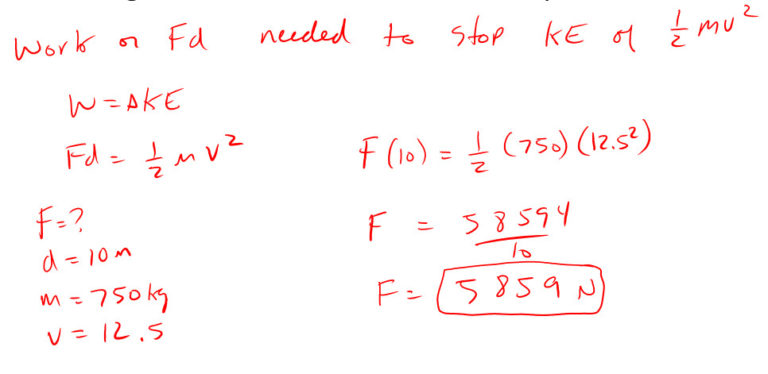 Work or Fd needed to stop KE of ½ mv²
W = ΔKE
Fd = ½ m v²
F = ?
d = 10 m
m = 750 kg
v = 12.5
F (10) = ½ (750) (12.5²)
F = 58594/10
F = 5859 N